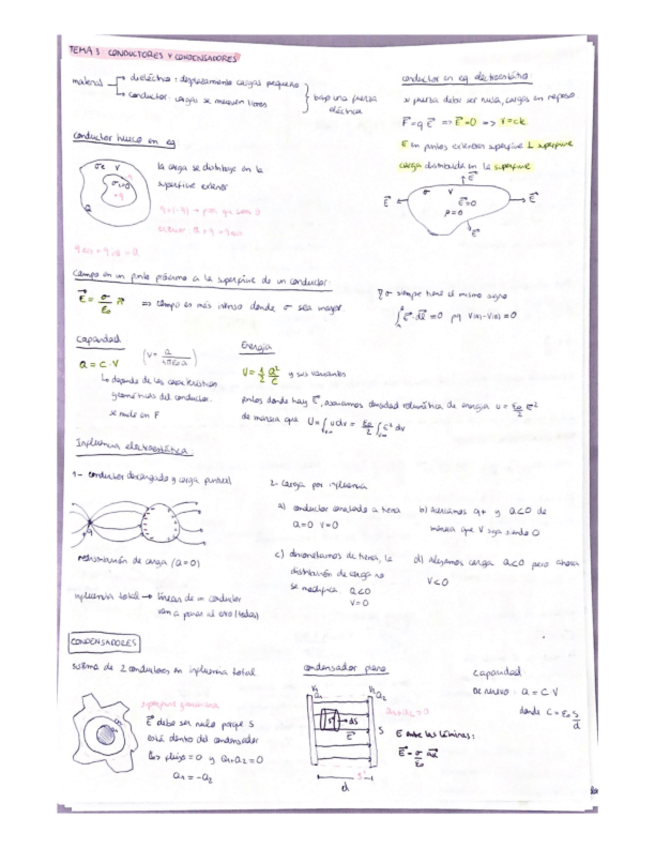 TEMA 3 CONDUCTORES Y CONDENSADORES
material
dieléctrico: desplazamiento cargas pequeño
conductor: cargas se mueven libres
bajo una fuerza
eléctrica
conductor en eq. electrostático:
F = q E => E = 0 => V = cte
E en puntos exteriores superficie ⊥ superficie
carga distribuida en la superficie
σ V
E = 0
ρ = 0
E
E
E
E
conductor hueco en eq
la carga se distribuye en la
superficie exterior
Q
campo en un punto próximo a la superficie de un conductor:
E = σ/ε0 n => campo es más intenso donde σ sea mayor
σ siempre tiene el mismo signo
∫ E · dl = 0 pq V(A)-V(B) = 0
Capacidad
Q = C·V (V = Q/4πε0a)
depende de las características
geométricas del conductor.
se mide en F
Energía
U = 1/2 Q²/C y sus variantes
puntos donde hay E, asociamos densidad volumétrica de energía u = ε0/2 E²
de manera que U = ∫ u dv = ε0/2 ∫ E² dv
Influencia electrostática:
1- conductor descargado y carga puntual
redistribución de carga (Q=0)
influencia total → líneas de un conductor
van a parar al otro (todas)
2- Carga por influencia
a) conductor conectado a tierra
Q=0 V=0
b) acercamos q+ y Q<0 de
manera que V siga siendo 0
c) desconectamos de tierra, la
distribución de carga no
se modifica. Q<0
V=0
d) alejamos carga Q<0 pero ahora
V<0
CONDENSADORES
sistema de 2 conductores en influencia total
superficie gaussiana
E debe ser nulo porque S
está dentro del condensador
flujo = 0 y Q1+Q2=0
Q1 = -Q2
condensador plano
V1 V2
Q1 Q2
Q1+Q2=0
ΔS
E
S
S'
d
E entre las láminas:
capacidad
De nuevo: Q = C V
donde C = ε0 S/d